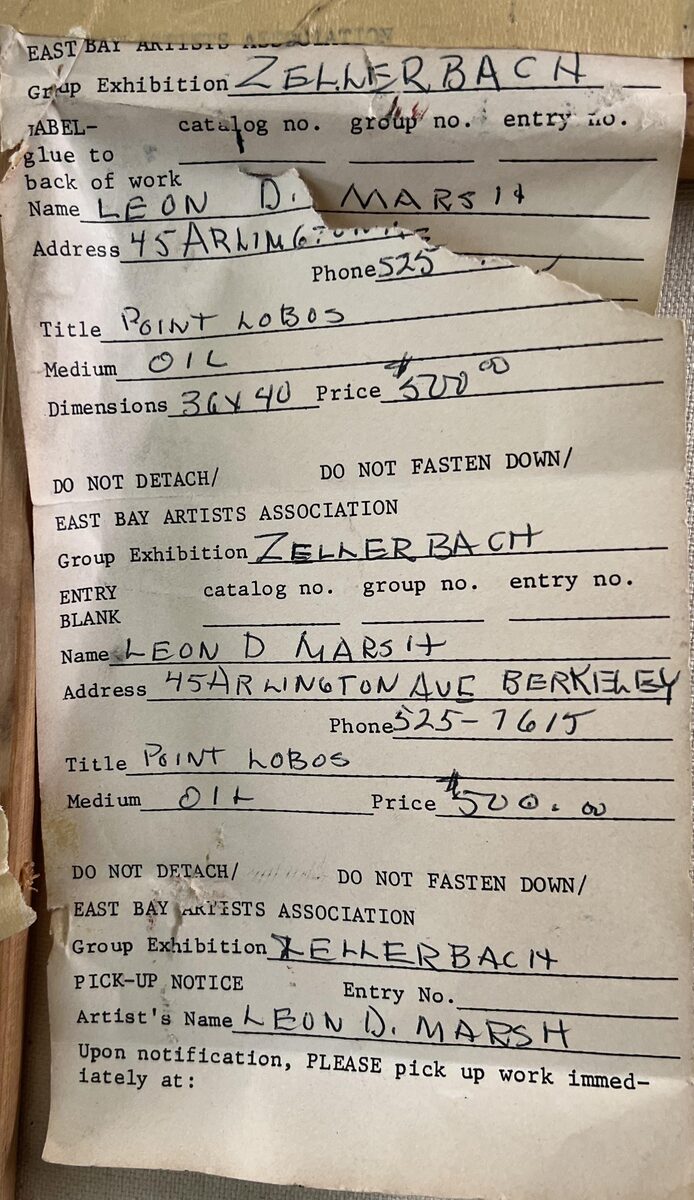 EAST BAY ARTISTS ASSOCIATION
Group Exhibition ZELLERBACH
LABEL- catalog no. group no. entry no.
glue to
back of work
Name LEON D. MARSH
Address 45 ARLINGTON AVE
Phone 525
Title POINT LOBOS
Medium OIL
Dimensions 36X40 Price $500.00
DO NOT DETACH/ DO NOT FASTEN DOWN/
EAST BAY ARTISTS ASSOCIATION
Group Exhibition ZELLERBACH
ENTRY catalog no. group no. entry no.
BLANK
Name LEON D MARSH
Address 45 ARLINGTON AVE BERKELEY
Phone 525-7615
Title POINT LOBOS
Medium OIL Price $500.00
DO NOT DETACH/ DO NOT FASTEN DOWN/
EAST BAY ARTISTS ASSOCIATION
Group Exhibition ZELLERBACH
PICK-UP NOTICE Entry No.
Artist's Name LEON D. MARSH
Upon notification, PLEASE pick up work immed-
iately at: